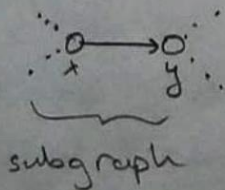 x y
subgraph